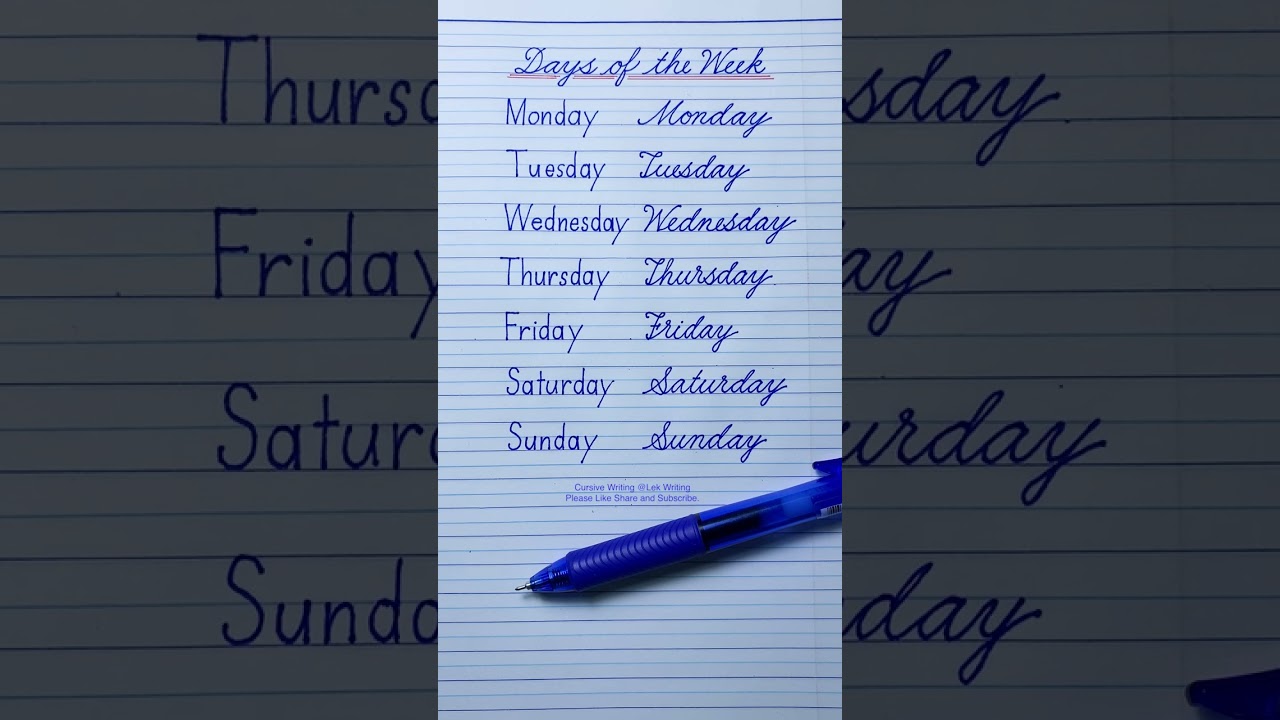 Days of the Week
Monday Monday
Tuesday Tuesday
Wednesday Wednesday
Thursday Thursday
Friday Friday
Saturday Saturday
Sunday Sunday
Cursive Writing @Lek Writing
Please Like Share and Subscribe.